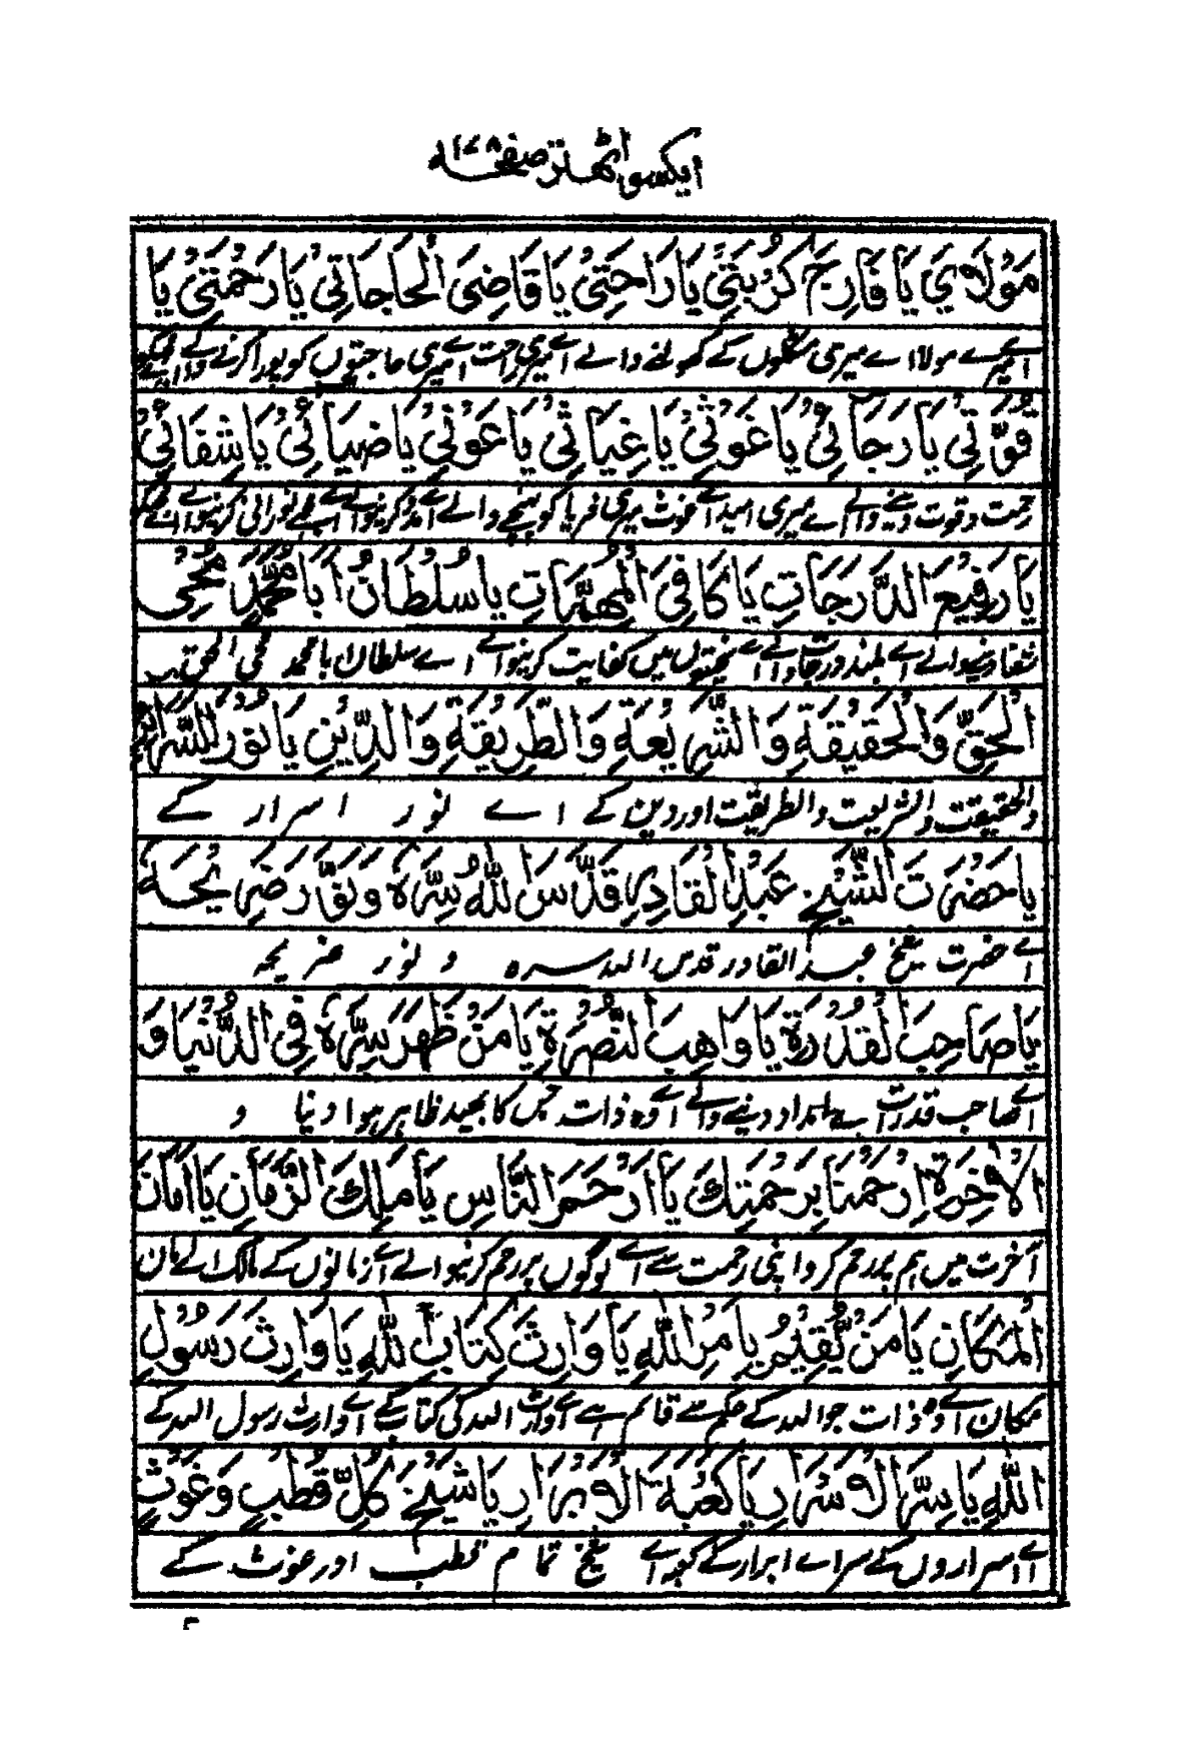 ایکسو اٹھتر صفحہ ۱۷۸
مَوْلَایَ یَا فَارِجَ كُرْبَتِيْ یَا رَاحَتِيْ یَا قَاضِيَ الْحَاجَاتِيْ یَا رَحْمَتِيْ یَا
اے میرے مولا اے میری مشکلوں کے کھولنے والے اے میری راحت اے میری حاجتوں کو پورا کرنے والے
قُوَّتِيْ یَا رَجَائِيْ یَا غَوْثِيْ یَا غِیَاثِيْ یَا عَوْنِيْ یَا ضِیَائِيْ یَا شِفَائِيْ
رحمت و قوت دینے والے اے میری امید اے غوث میری فریاد کو پہنچنے والے اے مدد کرنیوالے
یَا رَفِیْعَ الدَّرَجَاتِ یَا كَافِيَ الْمُهِمَّاتِ یَا سُلْطَانُ اَبَا مُحَمَّدٍ مُحْیِ
شفا دینے والے اے بلند درجات والے اے سختیوں میں کفایت کرنیوالے اے سلطان بامحمد محی الحق
الْحَقِّ وَالْحَقِیْقَةِ وَالشَّرِیْعَةِ وَالطَّرِیْقَةِ وَالدِّیْنِ یَا نُوْرَ السَّرَائِرِ
والحقیقت والشریعت والطریقت اور دین کے اے نور اسرار کے
یَا حَضْرَتَ الشَّیْخِ عَبْدِ الْقَادِرِ قَدَّسَ اللّٰهُ سِرَّهٗ وَنَوَّرَ ضَرِیْحَهٗ
اے حضرت شیخ عبد القادر قدس اللہ سرہ و نور ضریحہ
یَا صَاحِبَ الْقُدْرَةِ یَا وَاهِبَ النُّصْرَةِ یَا مَنْ ظَهَرَ سِرُّهٗ فِي الدُّنْیَا وَ
اے صاحب قدرت اے امداد دینے والے اے وہ ذات جس کا بھید ظاہر ہوا دنیا و
الْاٰخِرَةِ اِرْحَمْنَا بِرَحْمَتِكَ یَا اَرْحَمَ النَّاسِ یَا مَلِكَ الزَّمَانِ یَا اَمَانَ
آخرت میں ہم پر رحم کرو اپنی رحمت سے اے لوگوں پر رحم کرنیوالے اے زمانوں کے مالک اے امان
الْمَكَانِ یَا مَنْ یُّقِیْمُ بِاَمْرِ اللّٰهِ یَا وَارِثَ كِتَابِ اللّٰهِ یَا وَارِثَ رَسُوْلِ
مکان اے وہ ذات جو اللہ کے حکم سے قائم ہے اے وارث اللہ کی کتاب کے اے وارث رسول اللہ کے
اللّٰهِ یَا سِرَّ الْاَسْرَارِ یَا كَعْبَةَ الْاَبْرَارِ یَا شَیْخَ كُلِّ قُطْبٍ وَّغَوْثٍ
اے اسراروں کے سر اے ابرار کے کعبہ اے شیخ تمام قطب اور غوث کے